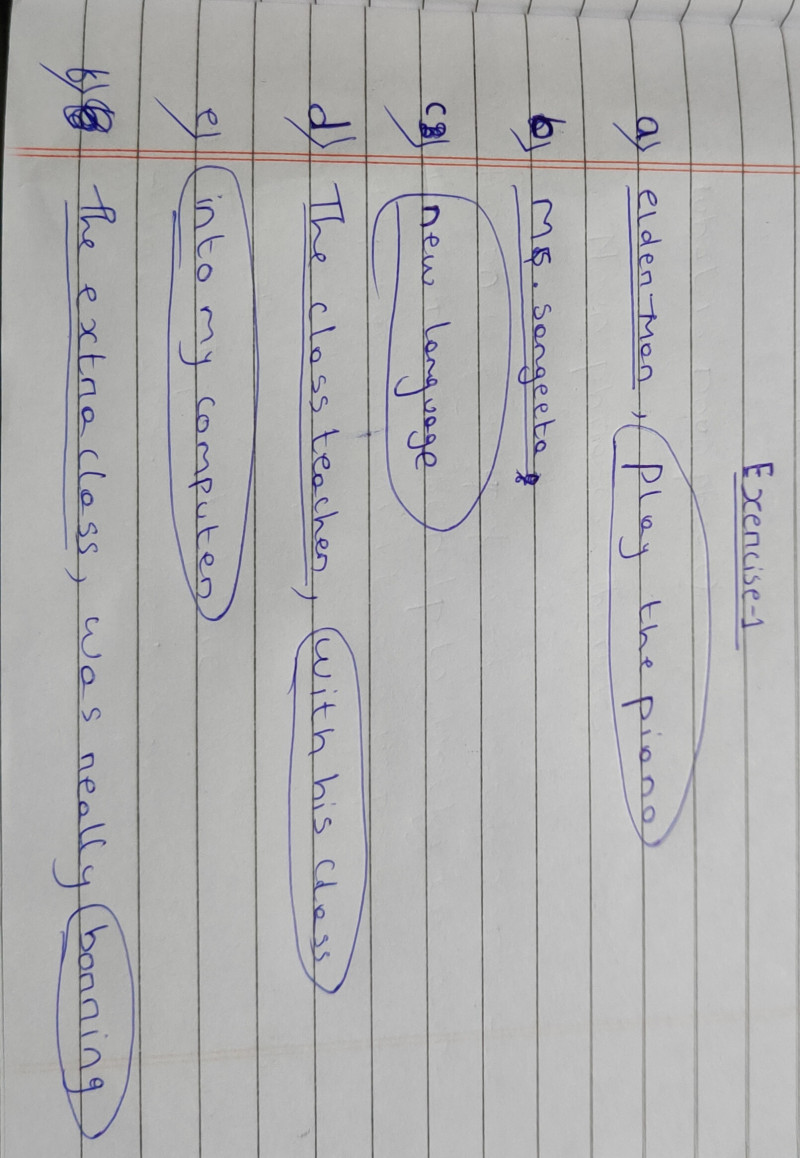 Exercise-1
a) elder man, play the piano
b) Ms. Sangeeta
c) new language
d) The class teacher, with his class
e) into my computer
f) The extra class, was really borring